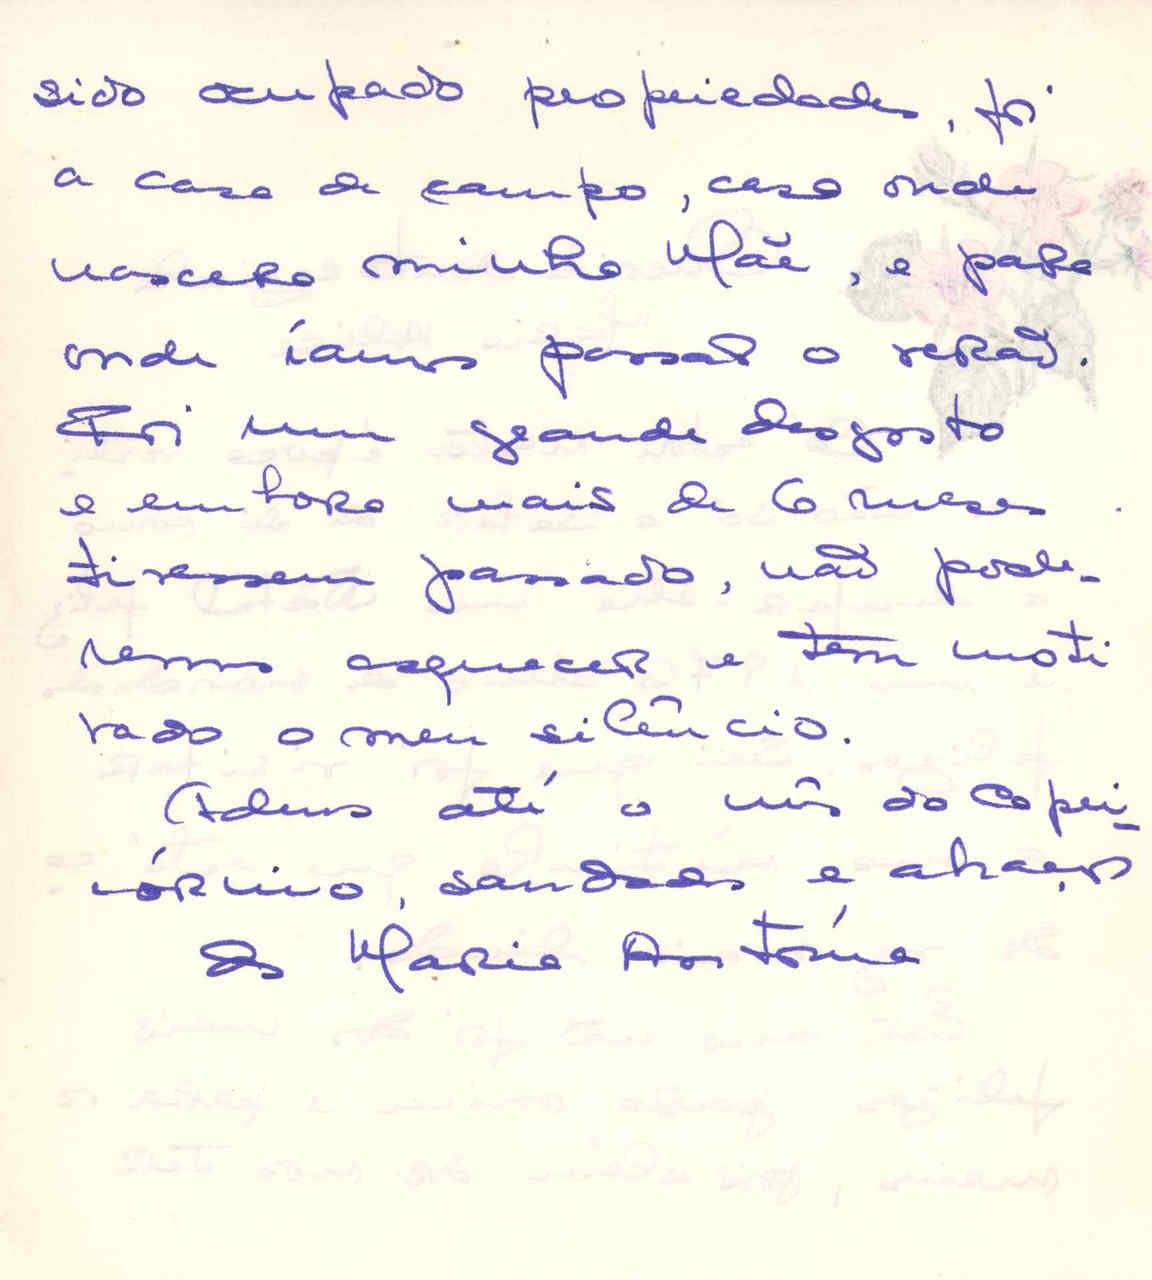 sido ocupado propriedades, foi
a casa de campo, casa onde
nascera minha Mãe, e para
onde íamos passar o verão.
Foi um grande desgosto
e embora mais de 6 meses
tivessem passado, não pode-
remos esquecer e tem moti
vado o meu silêncio.
Adeus até o mês do Capri-
córnio, saudades e abraços
da Maria Antónia